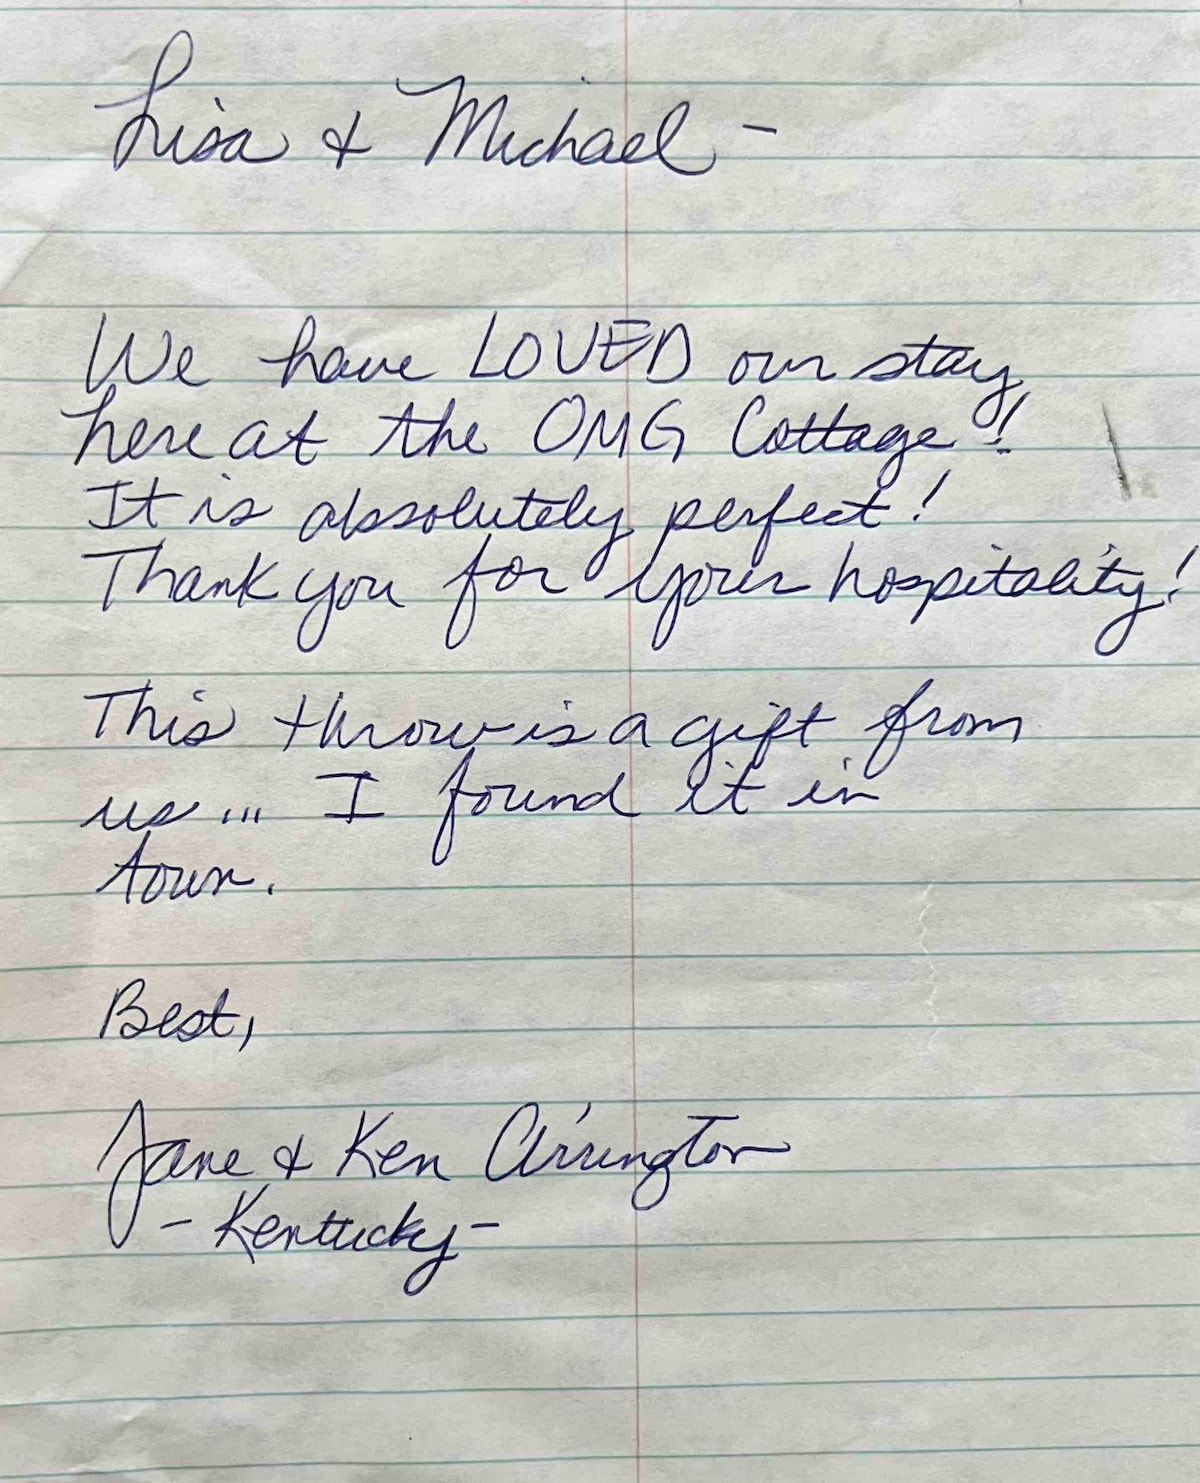 Lisa & Michael -
We have LOVED our stay
here at the OMG Cottage!
It is absolutely perfect!
Thank you for your hospitality!
This throw is a gift from
us... I found it in
town.
Best,
Jane & Ken Arrington
- Kentucky -